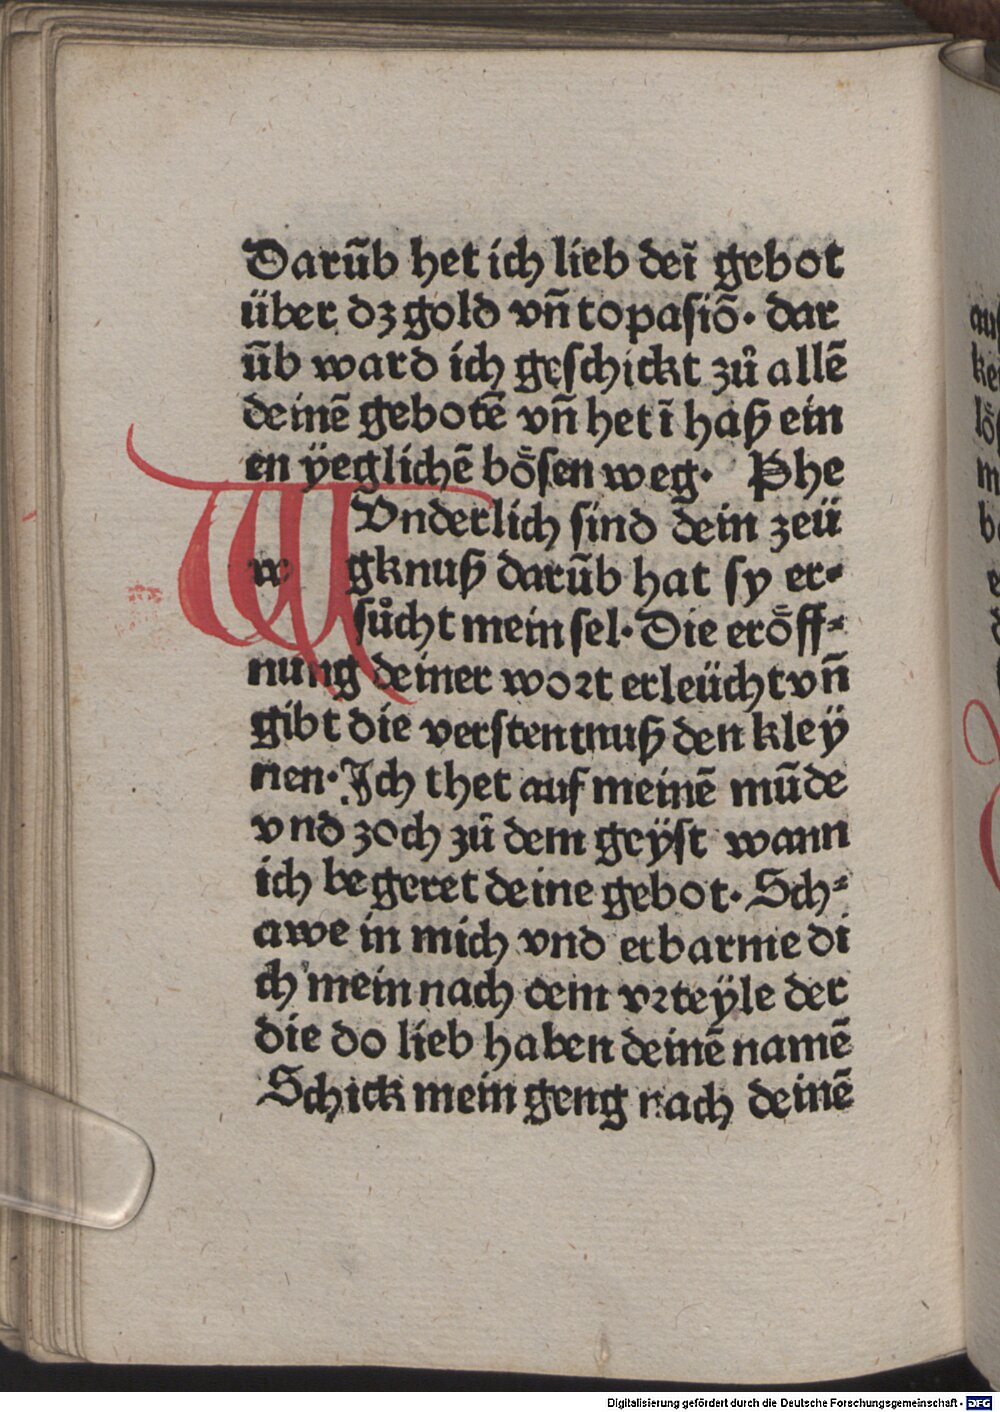 Darūb het ich lieb deī gebot
über dz gold vn̄ topasiō· dar
ūb ward ich geschickt zů allē
deinē gebotē vn̄ het ī haß ein
en ÿeglichē bo̊sen weg· Phe
WVnderlich sind dein zeü
w gknuß darūb hat sy er⸗
sůcht mein sel· Die ero̊ff⸗
nung deiner wort erleücht vn̄
gibt die verstentnuß den kleÿ
nen· Ich thet auf meinē mūde
vnd zoch zů dem geÿst wann
ich begeret deine gebot· Sch⸗
awe in mich vnd erbarme di
ch mein nach dem vrteÿle der
die do lieb haben deinē namē
Schick mein geng nach deinē
Digitalisierung gefördert durch die Deutsche Forschungsgemeinschaft - DFG